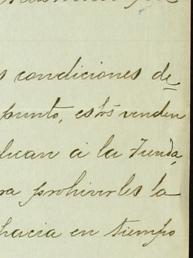 s condiciones de
punto, estos venden
lican á la tienda,
ra prohivirles la
hacia en tiempo